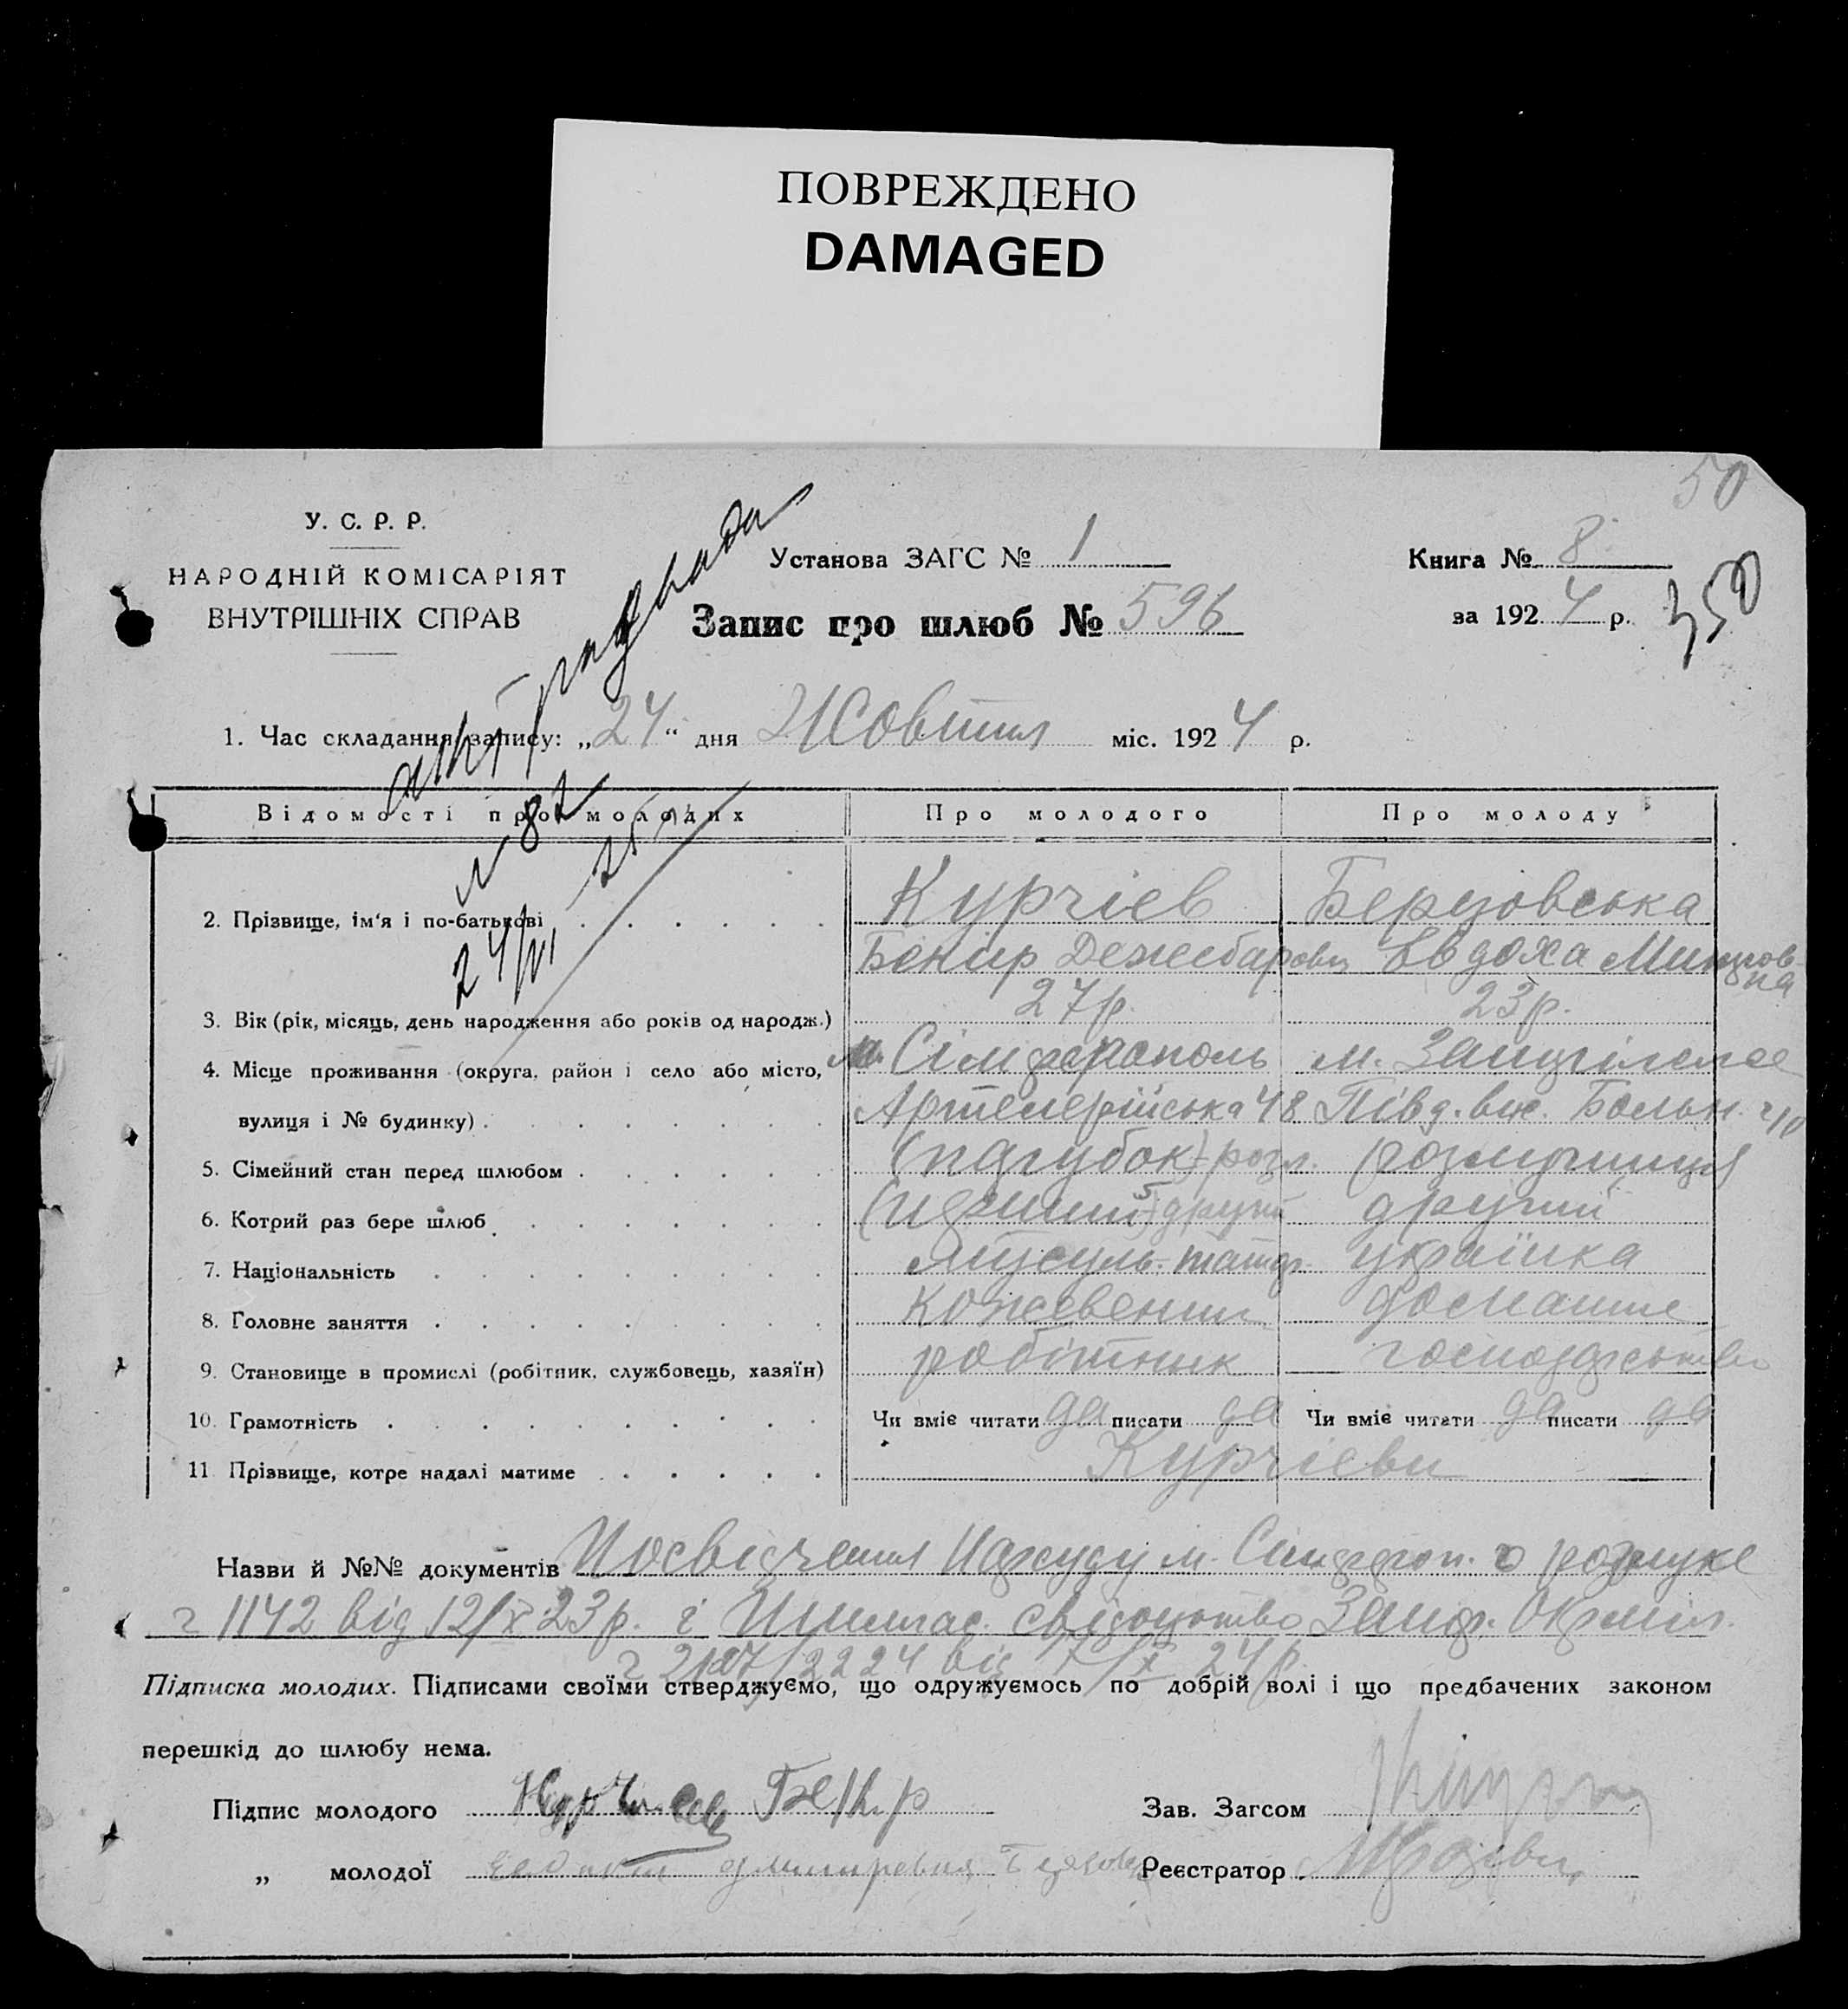 ПОВРЕЖДЕНО
DAMAGED
50
У. С. Р. Р.
НАРОДНІЙ КОМІСАРІЯТ
ВНУТРІШНІХ СПРАВ
Установа ЗАГС № 1
Запис про шлюб № 596
Книга № 8
за 1924 р.
350
акт
№ 82
24/VI
1. Час складання запису: „24“ дня Жовтня міс. 1924 р.
Відомості про молодих
Про молодого
Про молоду
2. Прізвище, ім'я і по-батькові
Курчієв
Березовська
Бекир
Евдоха
3. Вік (рік, місяць, день народження або років од народж.)
27 р.
23 р.
4. Місце проживання (округа, район і село або місто,
м. Сімферополь
м.
вулиця і № будинку)
Артелерійська 48
Півд.
5. Сімейний стан перед шлюбом
(парубок) розл.
розлучниця
6. Котрий раз бере шлюб
другий
другий
7. Національність
мусуль. татар.
українка
8. Головне заняття
кожевенник
домашнє
9. Становище в промислі (робітник, службовець, хазяїн)
робітник
господарство
10. Грамотність
Чи вміє читати да писати да
Чи вміє читати да писати да
11 Прізвище, котре надалі матиме
Курчієви
Назви й №№ документів Посвідчення Нарсуду м. Симфероп. о розлуке
1142 від 12/X 23 р. і свідоцтво
від 7/X 24 р.
Підписка молодих. Підписами своїми стверджуємо, що одружуємось по добрій волі і що предбачених законом
перешкід до шлюбу нема.
Підпис молодого
Курчиев Бекир
Зав. Загсом
„ молодої
Реєстратор